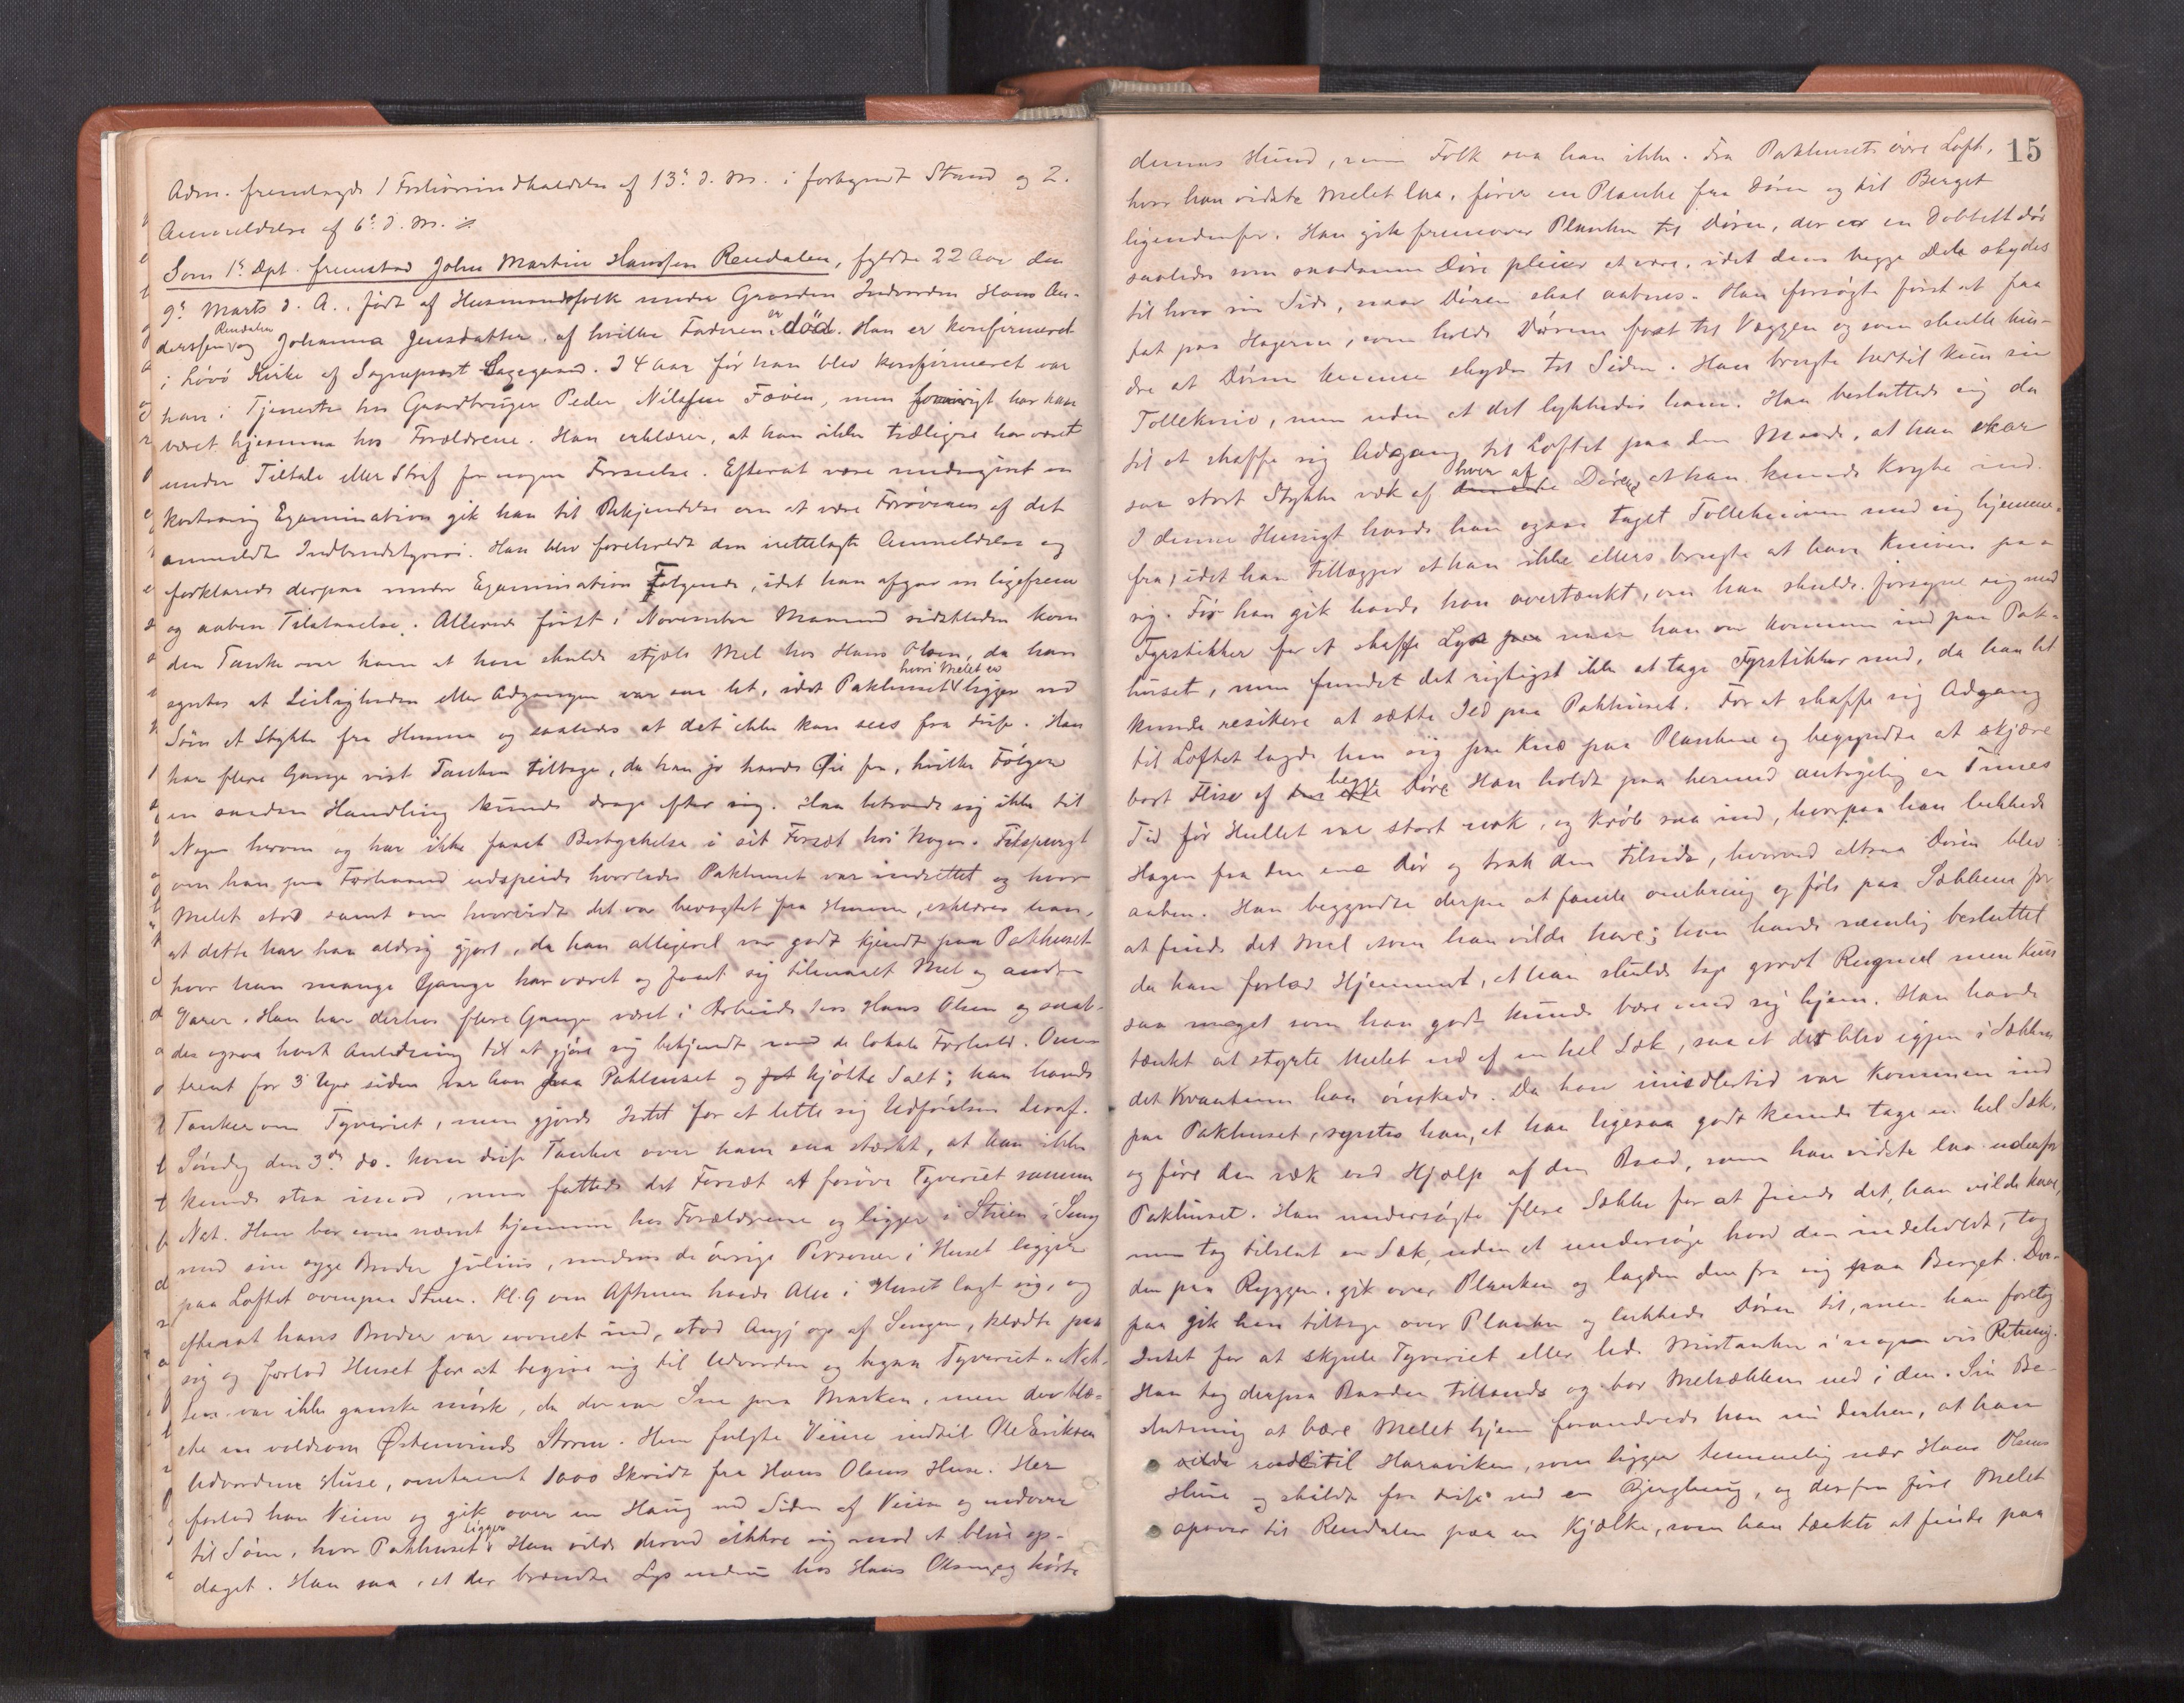 Adm. fremlagde 1 Forhørsindkaldelse af 13de d. M. i forkyndt Stand og 2.
Anmeldelse af 6te d. M. ./.
Som 1ste Dpt. fremstod John Martin Hanssen Rendalen, fyldte 22 Aar den
9de Marts d. A., født af Husmandsfolk under Gaarden Indvorden Hans An-
derssen Rendalen og Johanna Jensdatter, af hvilke Faderen er død. Han er konfirmeret
i Løvø Kirke af Sogneprest . I 4 Aar før han blev konfirmeret var
han i Tjeneste hos Gaardbruger Peder Nilssen Føvien, men forøvrigt har han
været hjemme hos Forældrene. Han erklærer, at han ikke tidligere har været
under Tiltale eller Straf for nogen Forseelse. Efterat være undergivet en
kortvarig Examination gik han til Bekjendelse om at være Forøveren af det
anmeldte Indbrudstyveri. Han blev foreholdt den irettelagte Anmeldelse og
forklarede derpaa under Examination Følgende, idet han afgav en ligefrem
og aaben Tilstaaelse: Allerede først i November Maaned sidstleden kom
den Tanke over ham at han skulde stjæle Mel hos Hans Olsen, da han
syntes at Leiligheden eller Adgangen var saa let, idet Pakhuset hvori Melet er ligger ved
Søen et Stykke fra Husene og saaledes at det ikke kan sees fra disse. Han
har flere Gange vist Tanken tilbage, da han jo havde Øie for, hvilke Følger
en saadan Handling kunde drage efter sig. Han betroede sig ikke til
Nogen herom og har ikke faaet Bestyrkelse i sit Forsæt hos Nogen. Tilspurgt
om han paa Forhaand udspeidede hvorledes Pakhuset var indrettet og hvor
Melet stod samt om hvorvidt det var bevogtet fra Husene, erklærer han,
at dette har han aldrig gjort, da han alligevel var godt kjendt paa Pakhuset
hvor han mange Gange har været og faaet sig tilmaalt Mel og andre
Varer. Han har derhos flere Gange været i Arbeide hos Hans Olsen og saale-
des ogsaa havt Anledning til at gjøre sig bekjendt med de lokale Forhold. Om-
trent for 3 Uger siden var han paa Pakhuset og kjøbte Salt; han havde
Tanken om Tyveriet, men gjorde Intet for at lette sig Udførelsen deraf.
Søndag den 3die ds. kom disse Tanker over ham saa stærkt, at han ikke
kunde staa imod, men fattede det Forsæt at forøve Tyveriet samme
Nat. Han bor som nævnt hjemme hos Forældrene og ligger i Stuen i Seng
med sin syge Broder Julius, medens de øvrige Personer i Huset ligger
paa Loftet ovenpaa Stuen. Kl. 9 om Aftenen havde Alle i Huset lagt sig, og
efterat hans Broder var sovnet ind, stod Angj. op af Sengen, klædte paa
sig og forlod Huset for at begive sig til Udvorden og begaa Tyveriet. Nat-
ten var ikke ganske mørk, da der var Sne paa Marken, men der blæ-
ste en voldsom Østenvinds Storm. Han fulgte Veien indtil Ole Eriksen
Udvordens Huse, omtrent 1000 Skridt fra Hans Olsens Huse. Her
forlod han Veien og gik over en Haug ved Siden af Veien og nedover
til Søen, hvor Pakhuset ligger. Han vilde derved sikkre sig mod at blive op-
daget. Han saa, at der brændte Lys inde hos Hans Olsen, og hørte
15
dennes Hund, men Folk saa han ikke. Fra Pakhusets øvre Loft,
hvor han vidste Melet laa, fører en Planke fra Døren og til Berget
ligeudenfor. Han gik fremover Planken til Døren, der er en dobbelt Dør
saaledes som saadanne Døre pleier at være, idet dens begge Dele skydes
til hver sin Side, naar Døren skal aabnes. Han forsøgte først at faa
fat paa Hagerne, som holdt Dørene fast til Væggen og som skulle hin-
dre at Dørene kunne skydes til Siden. Han brugte hertil kun sin
Tollekniv, men uden at det lykkedes ham. Han besluttede sig da
til at skaffe sig Adgang til Loftet paa den Maade, at han skar
saa stort Stykke væk af hver af Døre, at han kunde krybe ind.
I denne Hensigt havde han ogsaa taget Tollekniven med sig hjemme-
fra, idet han tillægger at han ikke ellers brugte at have Kniven paa
sig. Før han gik havde han overtænkt, om han skulde forsyne sig med
Fyrstikker for at skaffe Lys naar han var kommen ind paa Pak-
huset, men fandt det rigtigst ikke at tage Fyrstikker med, da han let
kunde resikere at sætte Ild paa Pakhuset. For at skaffe sig Adgang
til Loftet lagde han sig paa Knæ paa Planken og begyndte at skjære
bort Fliser af begge Døre. Han holdt paa hermed antagelig en Times
Tid før Hullet var stort nok, og krøb saa ind, hvorpaa han lukkede
Hagen fra den ene Dør og trak den tilside, hvorved altsaa Døren blev
aaben. Han begyndte derpaa at famle omkring og føle paa Sækkene for
at finde det Mel som han vilde have; han havde nemlig besluttet
da han forlod Hjemmet, at han skulde tage grovt Rugmel men kun
saa meget som han godt kunde bære med sig hjem. Han havde
tænkt at styrte Melet ud af en hel Sæk, saa at det blev igjen i Sækken
det Kvantum han ønskede. Da han imidlertid var kommen ind
paa Pakhuset, syntes han, at han ligesaa godt kunde tage en hel Sæk
og føre den væk ved Hjælp af den Baad, som han vidste laa udenfor
Pakhuset. Han undersøgte flere Sække for at finde det, han vilde have,
men tog tilslut en Sæk, uden at undersøge hvad den indeholdt, tog
den paa Ryggen, gik over Planken og lagde den fra sig paa Berget. Der-
paa gik han tilbage over Planken og lukkede Døren til, men han foretog
Intet for at skjule Tyveriet eller lede Mistanken i nogen vis Retning.
Han tog derpaa Baaden tillands og bar Melsækken ned i den. Sin Be-
slutning at bære Melet hjem forandrede han nu derhen, at han
vilde ro til Haraviken, som ligger temmelig nær Hans Olsens
Huse og skildt fra disse ved en Bjerghaug, og derfra føre Melet
opover til Rendalen paa en Kjælke, som han tænkte at finde paa